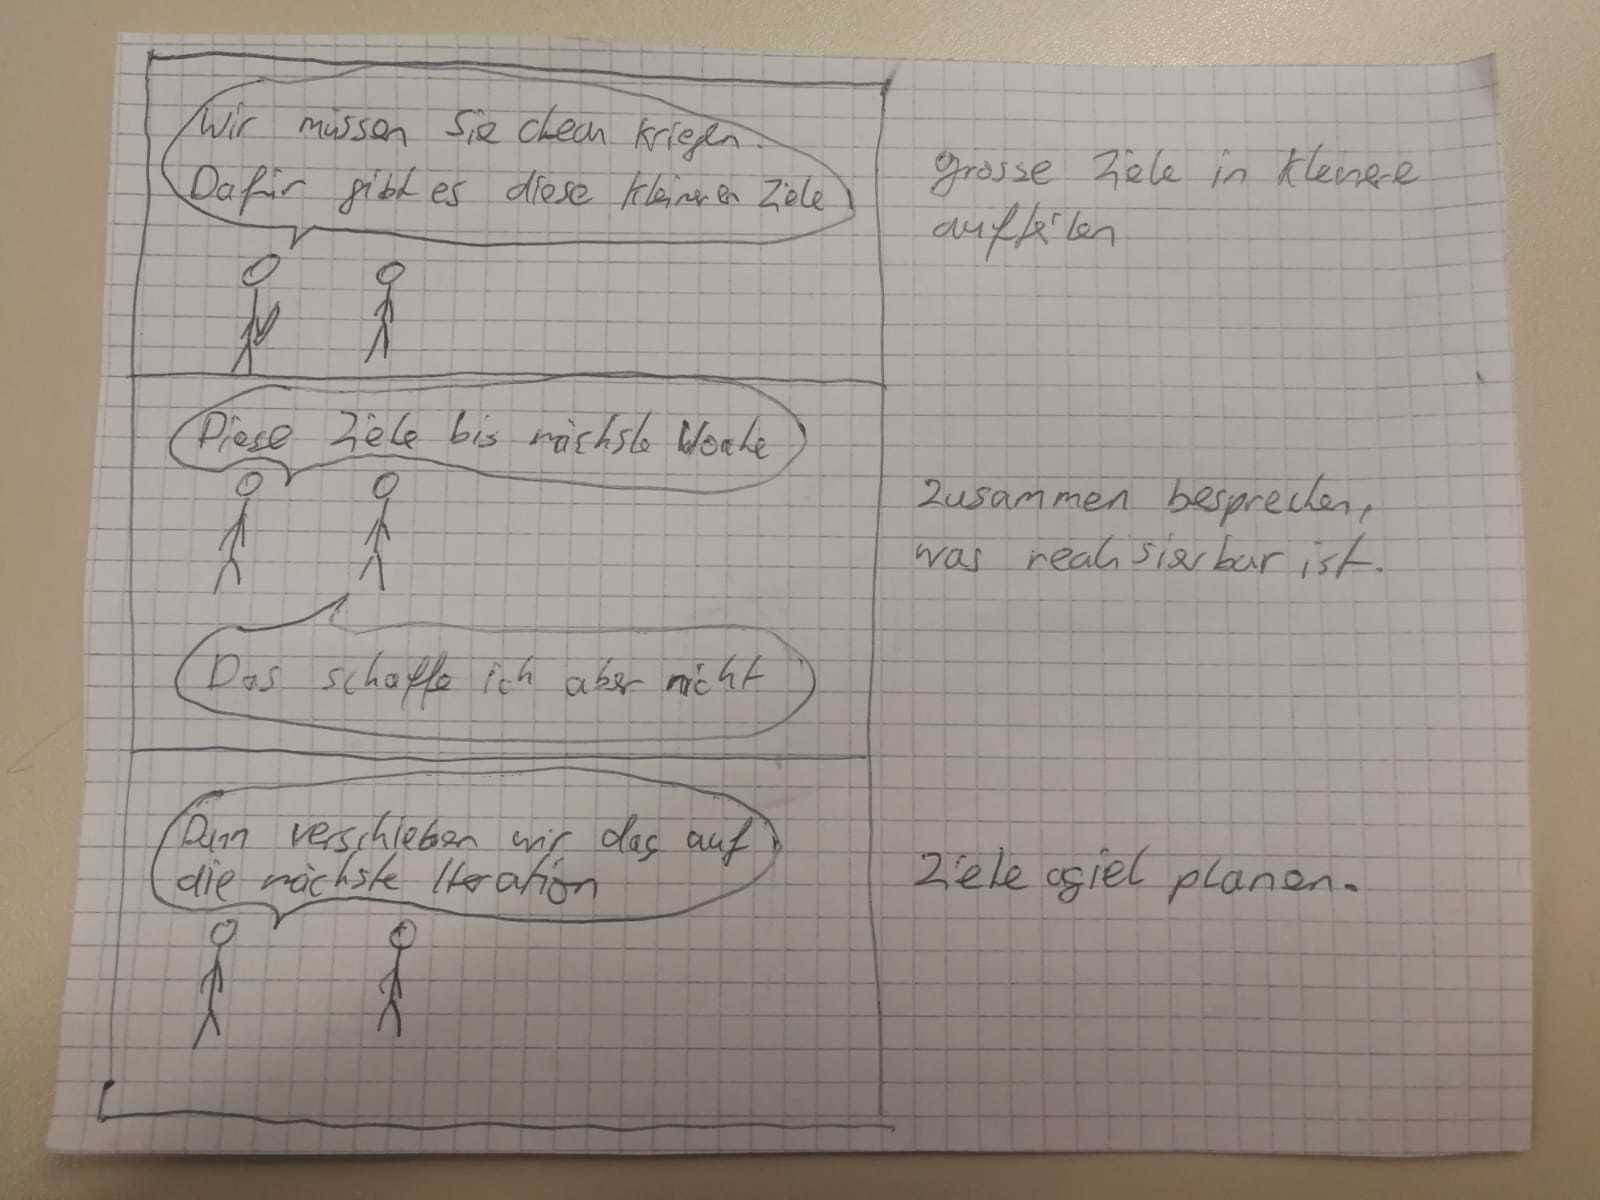 Wir müssen Sie clean kriegen.
Dafür gibt es diese kleineren Ziele
grosse Ziele in kleinere
aufteilen
Diese Ziele bis nächste Woche
Das schaffe ich aber nicht
zusammen besprechen,
was realisierbar ist.
Dann verschieben wir das auf
die nächste Iteration
Ziele agiel planen.